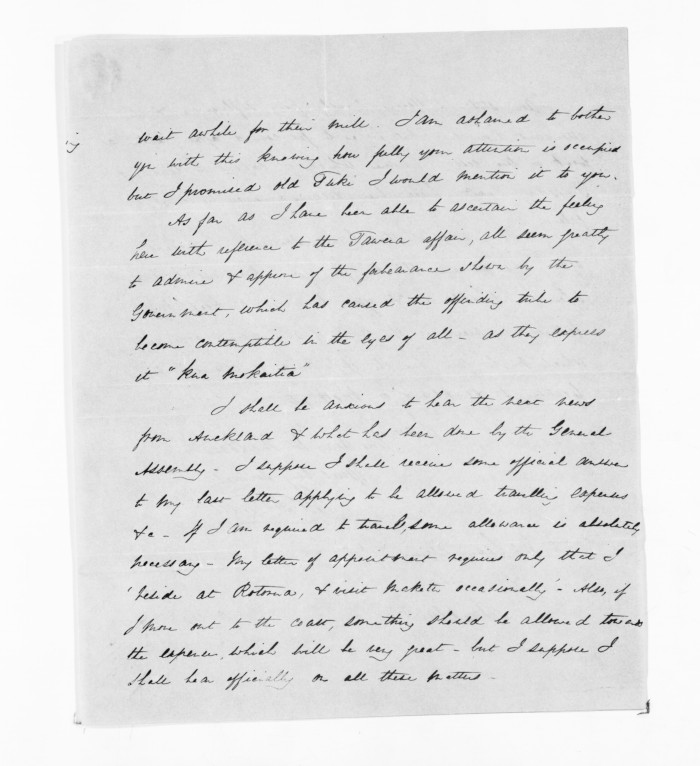 wait awhile for their mill. I am ashamed to bother
you with this knowing how fully your attention is occupied
but I promised old Tuki I would mention it to you.
As far as I have been able to ascertain the feeling
here with reference to the Tawera affair, all seem greatly
to admire & approve of the forbearance shown by the
Government, which has caused the offending tribe to
become contemptible in the eyes of all - as they express
it "kua mokaitia"
I shall be anxious to hear the next news
from Auckland & what has been done by the General
Assembly - I suppose I shall receive some official answer
to my last letter applying to be allowed travelling expenses
&c - If I am required to travel, some allowance is absolutely
necessary - My letter of appointment requires only that I
'reside at Rotorua, & visit Maketu occasionally' - Also, if
I move out to the coast, something should be allowed towards
the expense, which will be very great - but I suppose I
shall hear officially on all these matters -